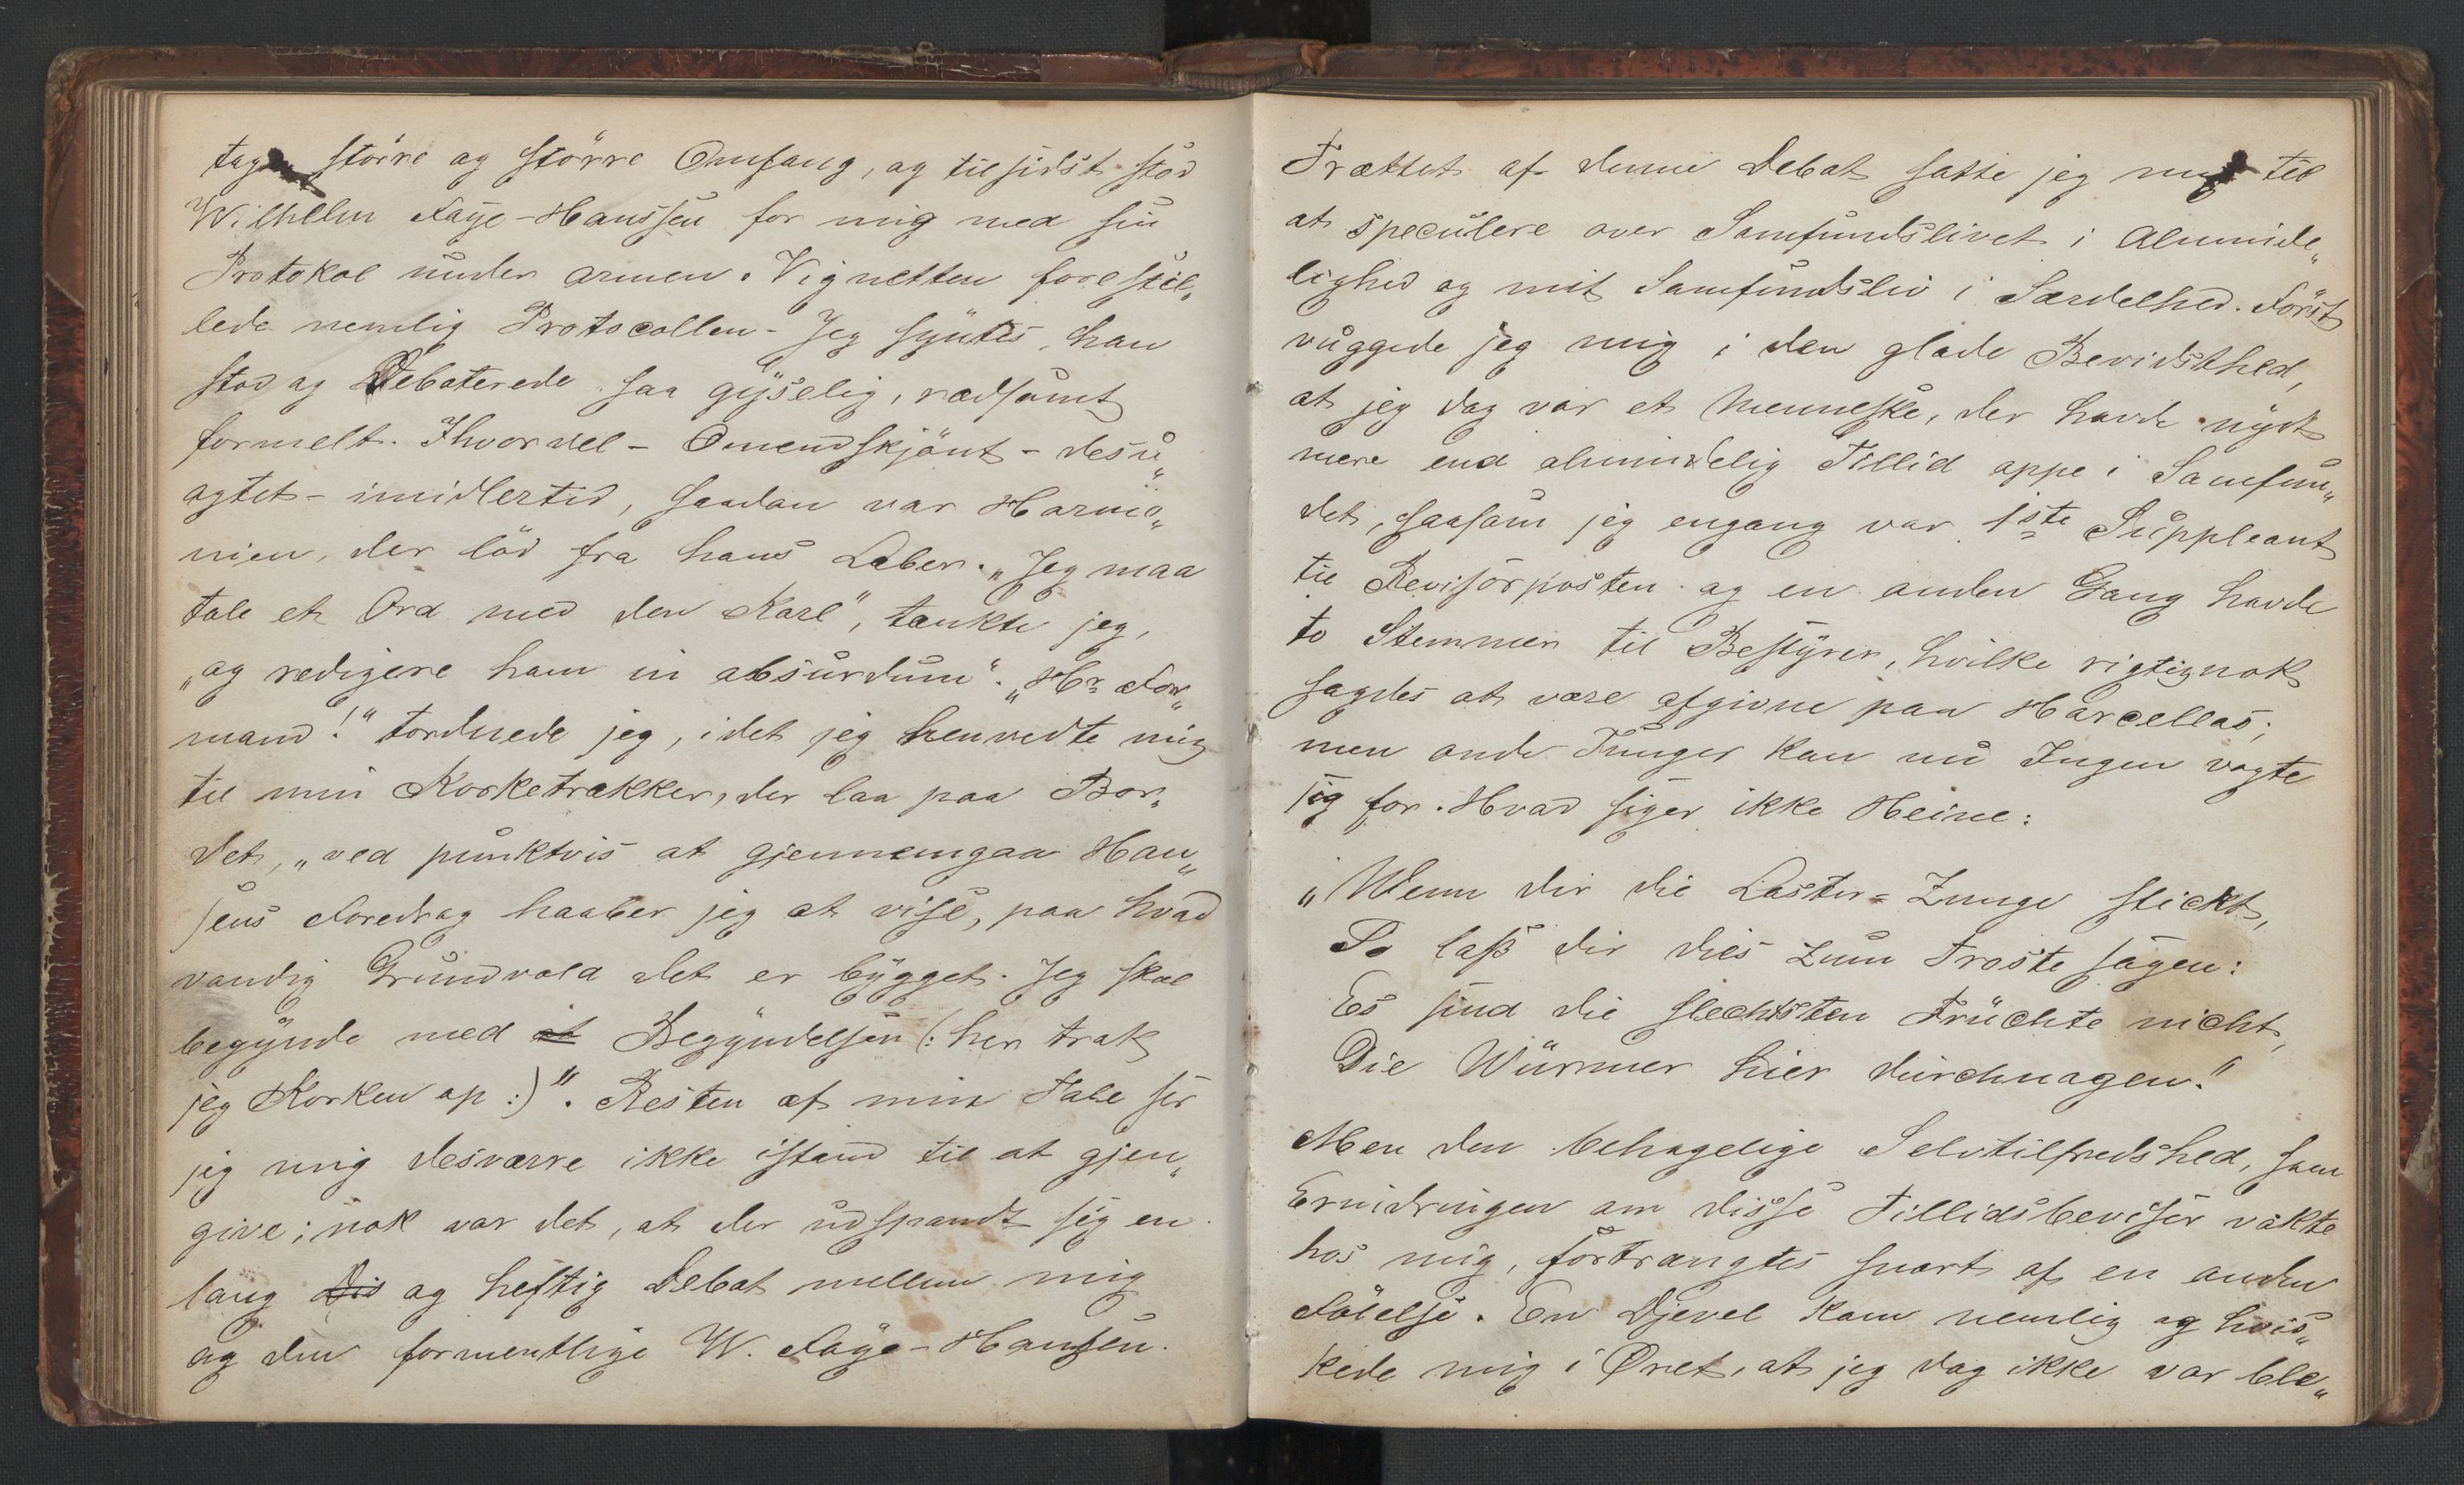 tage större og større Omfang, og tilsidst stod
Wilhelm Faye-Hanssen for mig med sin
Protokol under Armen. Vignetten forestil„
lede nemlig Protocollen - Jeg syntes, han
stod og Debaterede saa gyselig, rædsomt
formelt. Ihvorvel - Omendskjönt - desu„
agtet - imidlertid, saadan var Harmo„
nien, der lød fra hans Læber. „Jeg maa
tale et Ord med den Karl", tænkte jeg,
„og redigere ham in absurdum". „Hr For„
mand!" tordnede jeg, idet jeg henvedte mig
til min Korketrækker, der laa paa Bor„
det, „ved punktvis at gjennemgaa Han„
sens Foredrag haaber jeg at vise, paa hvad
vandig Grundvold det er bygget. Jeg skal
begynde med at Begyndelsen (: her trak
jeg Korken op :)". Resten af min Tale ser
jeg mig desværre ikke istand til at gjen„
give; nok var det, at der udspandt sig en
lang Dis og heftig Debat mellem mig
og den formentlige W. Faye-Hansen.
Trættet af denne Debat satte jeg mig til
at speculere over Samfundslivet i Alminde„
lighed og mit Samfundsliv i Særdelhed. Först
vuggede jeg mig i den glade Bevidsthed,
at jeg dog var et Menneske, der havde nydt
mere end almindelig Tillid oppe i Samfun„
det, saasom jeg engang var 1ste Suppleant
til Revisorposten og en anden Gang havde
to Stemmer til Bestyrer, hvilke rigtignok
sagdes at være afgivne paa Harcellas;
men onde Tunger kan nu Ingen vogte
sig for. Hvad siger ikke Heine:
„Wenn dir die Laster-Zunge stickt,
So laß dir dies zum Troste sagen:
Es sind die slechtsten Früchte nicht,
Die Würmer hier durchnagen."
Men den behagelige Selvtilfredshed, som
Erindringen om disse Tillidsbeviser vakte
hos mig, fortrængtes snart af en anden
Fölelse. En Djevel kom nemlig og hvis„
kede mig i Øret, at jeg dog ikke var ble„